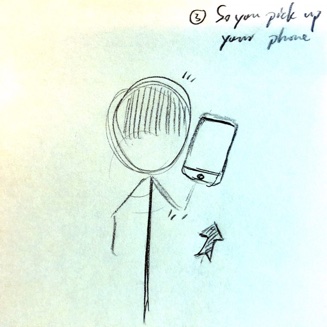 ③ So you pick up
your phone